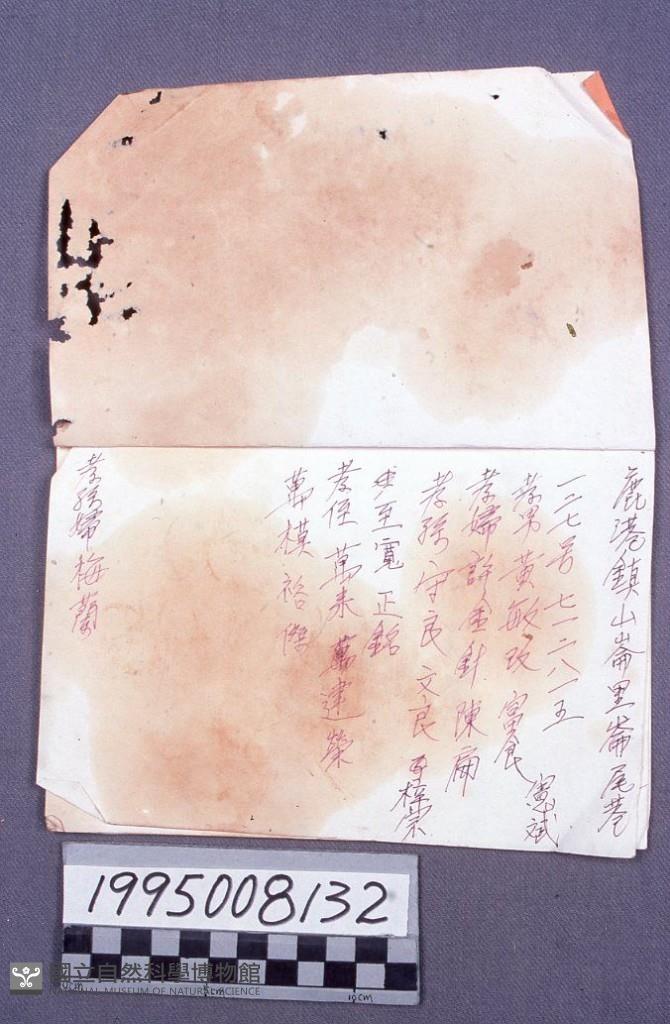 鹿港鎮山崙里崙尾巷
一二七号 七一二八一五
孝男 黃敏政 富食 寅斌
孝婦 許金針 陳扁
孝孫 守良 文良 梓荣
至寬 正銘
孝侄 萬来 萬建榮
萬模 裕傑
孝孫婦 梅蘭
1995008132
國立自然科學博物館
NATIONAL MUSEUM OF NATURAL SCIENCE
10cm